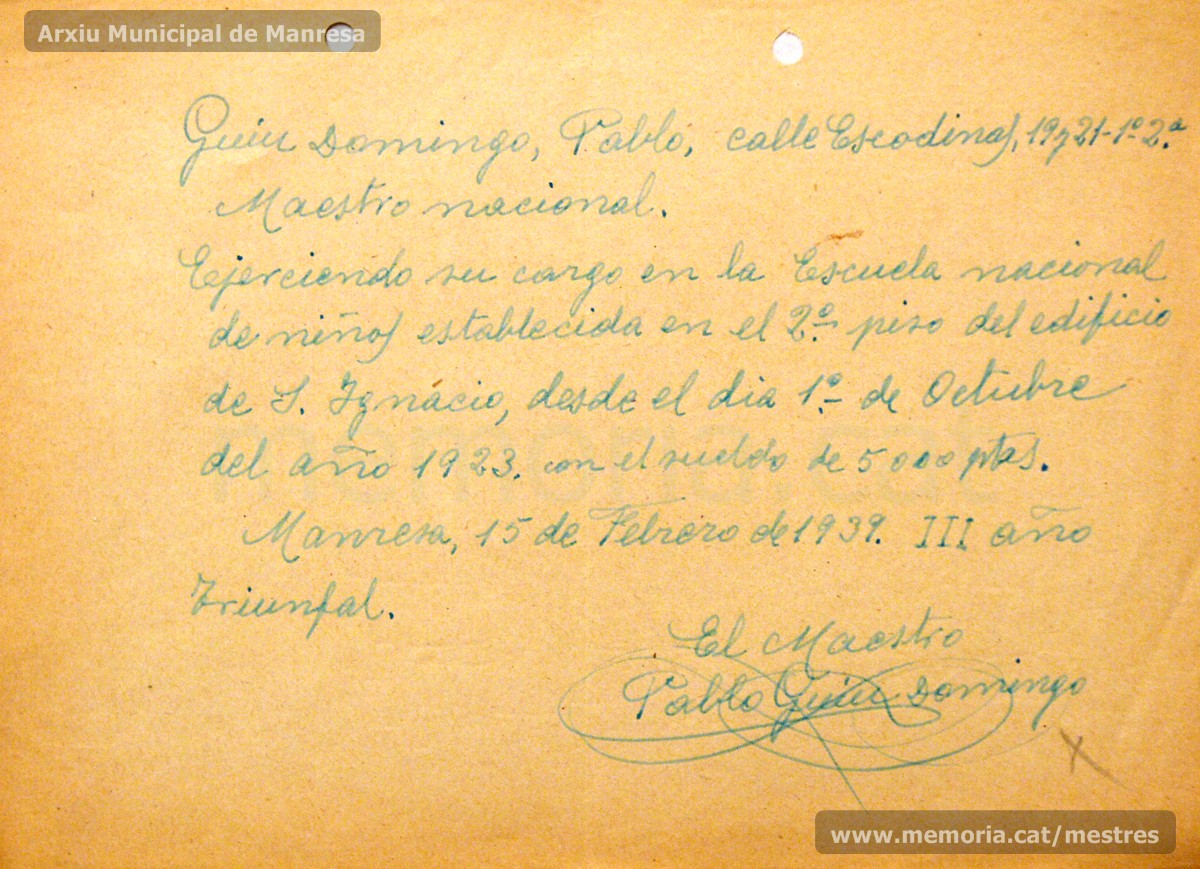 Arxiu Municipal de Manresa
Guiu Domingo, Pablo, calle Escodinas, 19 y 21-1º 2ª
Maestro nacional.
Ejerciendo su cargo en la Escuela nacional
de niños establecida en el 2º piso del edificio
de S. Ignacio, desde el dia 1º de Octubre
del año 1923. con el sueldo de 5000 ptas.
Manresa, 15 de Febrero de 1939. III año
Triunfal.
El Maestro
Pablo Guiu Domingo
X
www.memoria.cat/mestres